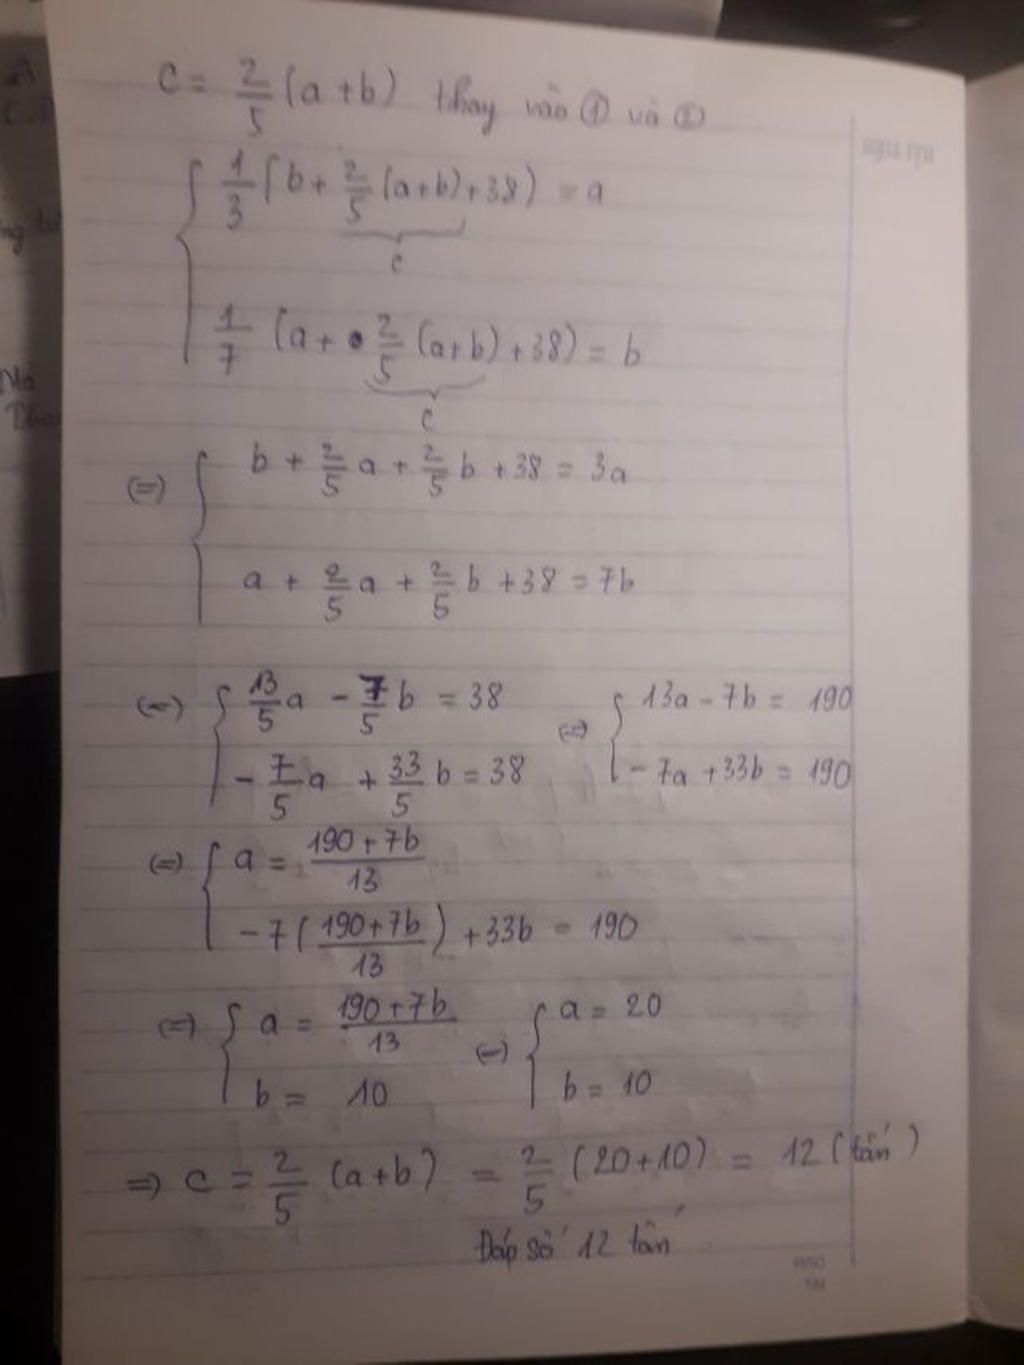 c = 2/5 (a + b) thay vào ① và ②
1/3 (b + 2/5 (a+b) + 38) = a
c
1/7 (a + 2/5 (a+b) + 38) = b
c
(=) b + 2/5 a + 2/5 b + 38 = 3a
a + 2/5 a + 2/5 b + 38 = 7b
(=) 13/5 a - 7/5 b = 38 (=) 13a - 7b = 190
- 7/5 a + 33/5 b = 38 - 7a + 33b = 190
(=) a = 190 + 7b / 13
- 7 ( 190+7b / 13 ) + 33b = 190
(=) a = 190 + 7b / 13 (=) a = 20
b = 10 b = 10
=> c = 2/5 (a+b) = 2/5 (20+10) = 12 (tấn)
Đáp số 12 tấn